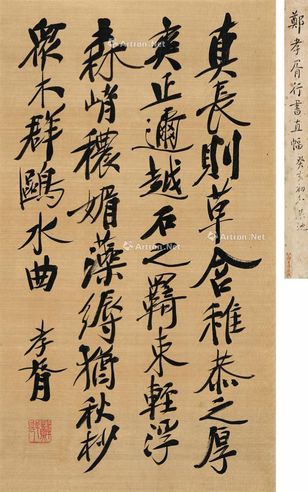 真長則草含稚恭之厚
爽正邇越石之羈束輕浮
森峭穠媚藻縟猶秋杪
眾木群鷗水曲
孝胥
鄭孝胥行書直幅 癸亥初
Artron.Net
Artron.Net
Artron.Net
Artron.Net